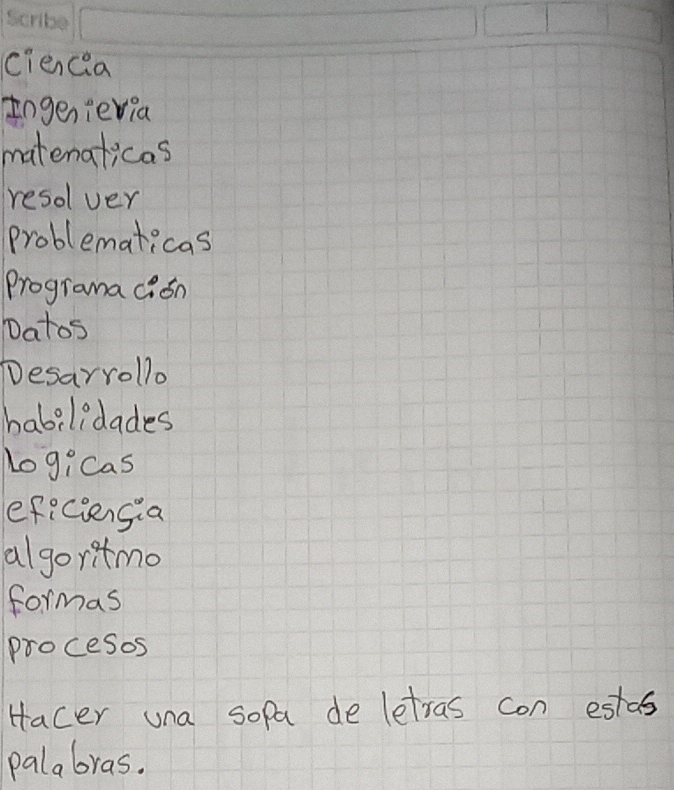 Scribe
Ciencia
Ingenieria
matematicas
resolver
Problematicas
Programación
Datos
Desarrollo
habilidades
Logicas
eficiencia
algoritmo
formas
procesos
Hacer una sopa de letras con estas
palabras.